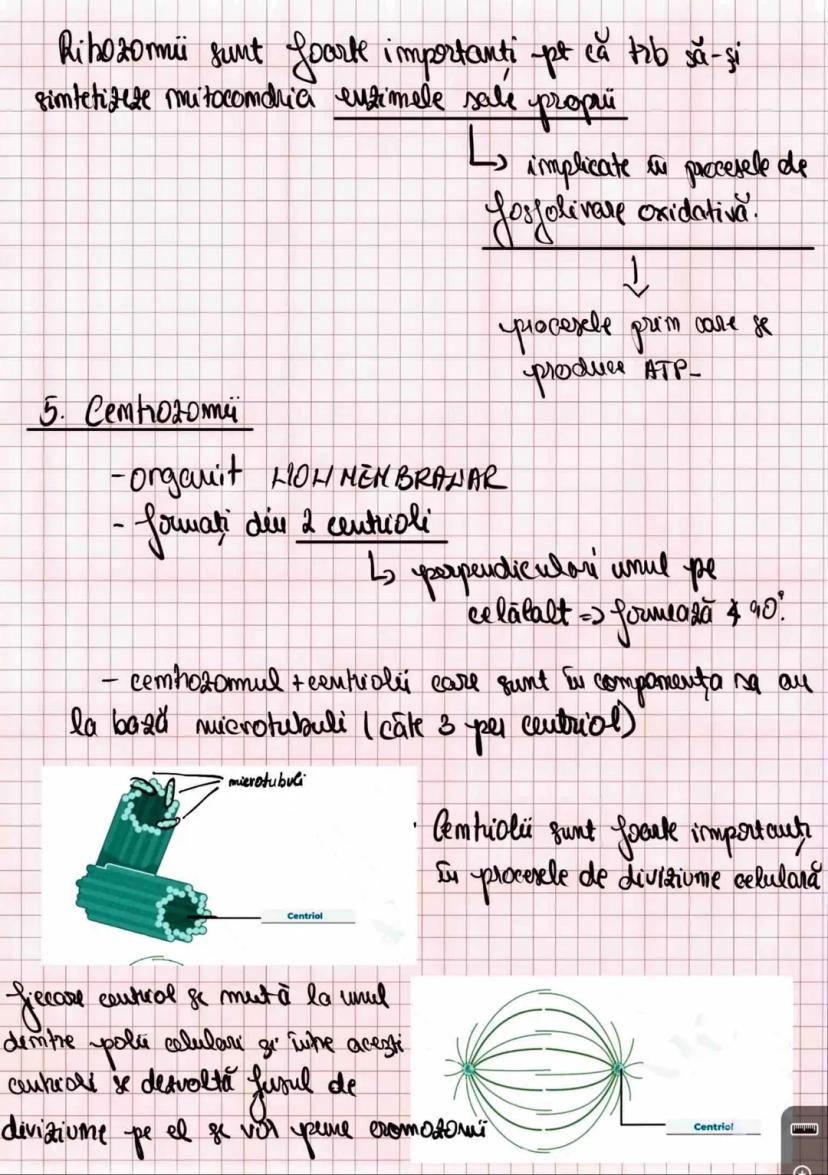 Ribozomii sunt foarte importanți pt că trb să-și
sintetizeze mitocondria enzimele sale proprii
↳ implicate în procesele de
fosforilare oxidativă.
↓
procesele prin care se
produce ATP-
5. Centrozomii
- organit NONMEMBRANAR
- formați din 2 centrioli
↳ perpendiculari unul pe
celălalt => formează ∡ 90°.
- centrozomul + centriolii care sunt în componența sa au
la bază microtubuli (câte 3 per centriol)
microtubuli
Centriol
Centriolii sunt foarte importanți
în procesele de diviziune celulară
fiecare centriol se mută la unul
dintre polii celulari și între acești
centrioli se dezvoltă fusul de
diviziune pe el se vor pune cromozomii
Centriol